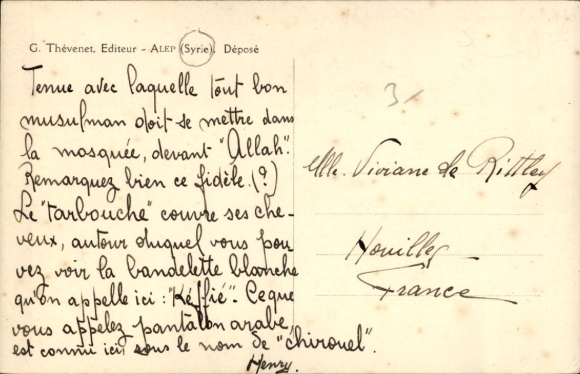 G. Thévenet, Editeur - ALEP (Syrie). Déposé
Tenue avec laquelle tout bon
musulman doit se mettre dans
la mosquée, devant "Allah".
Remarquez bien ce fidèle. (?)
Le "tarbouche" couvre ses che-
veux, autour duquel vous pou
vez voir la bandelette blanche
qu'on appelle ici : "Kéffié". Ce que
vous appelez pantalon arabe,
est connu ici sous le nom de "chirouel".
Henry.
3/
Mlle. Viviane de Rittley
Houilles
France